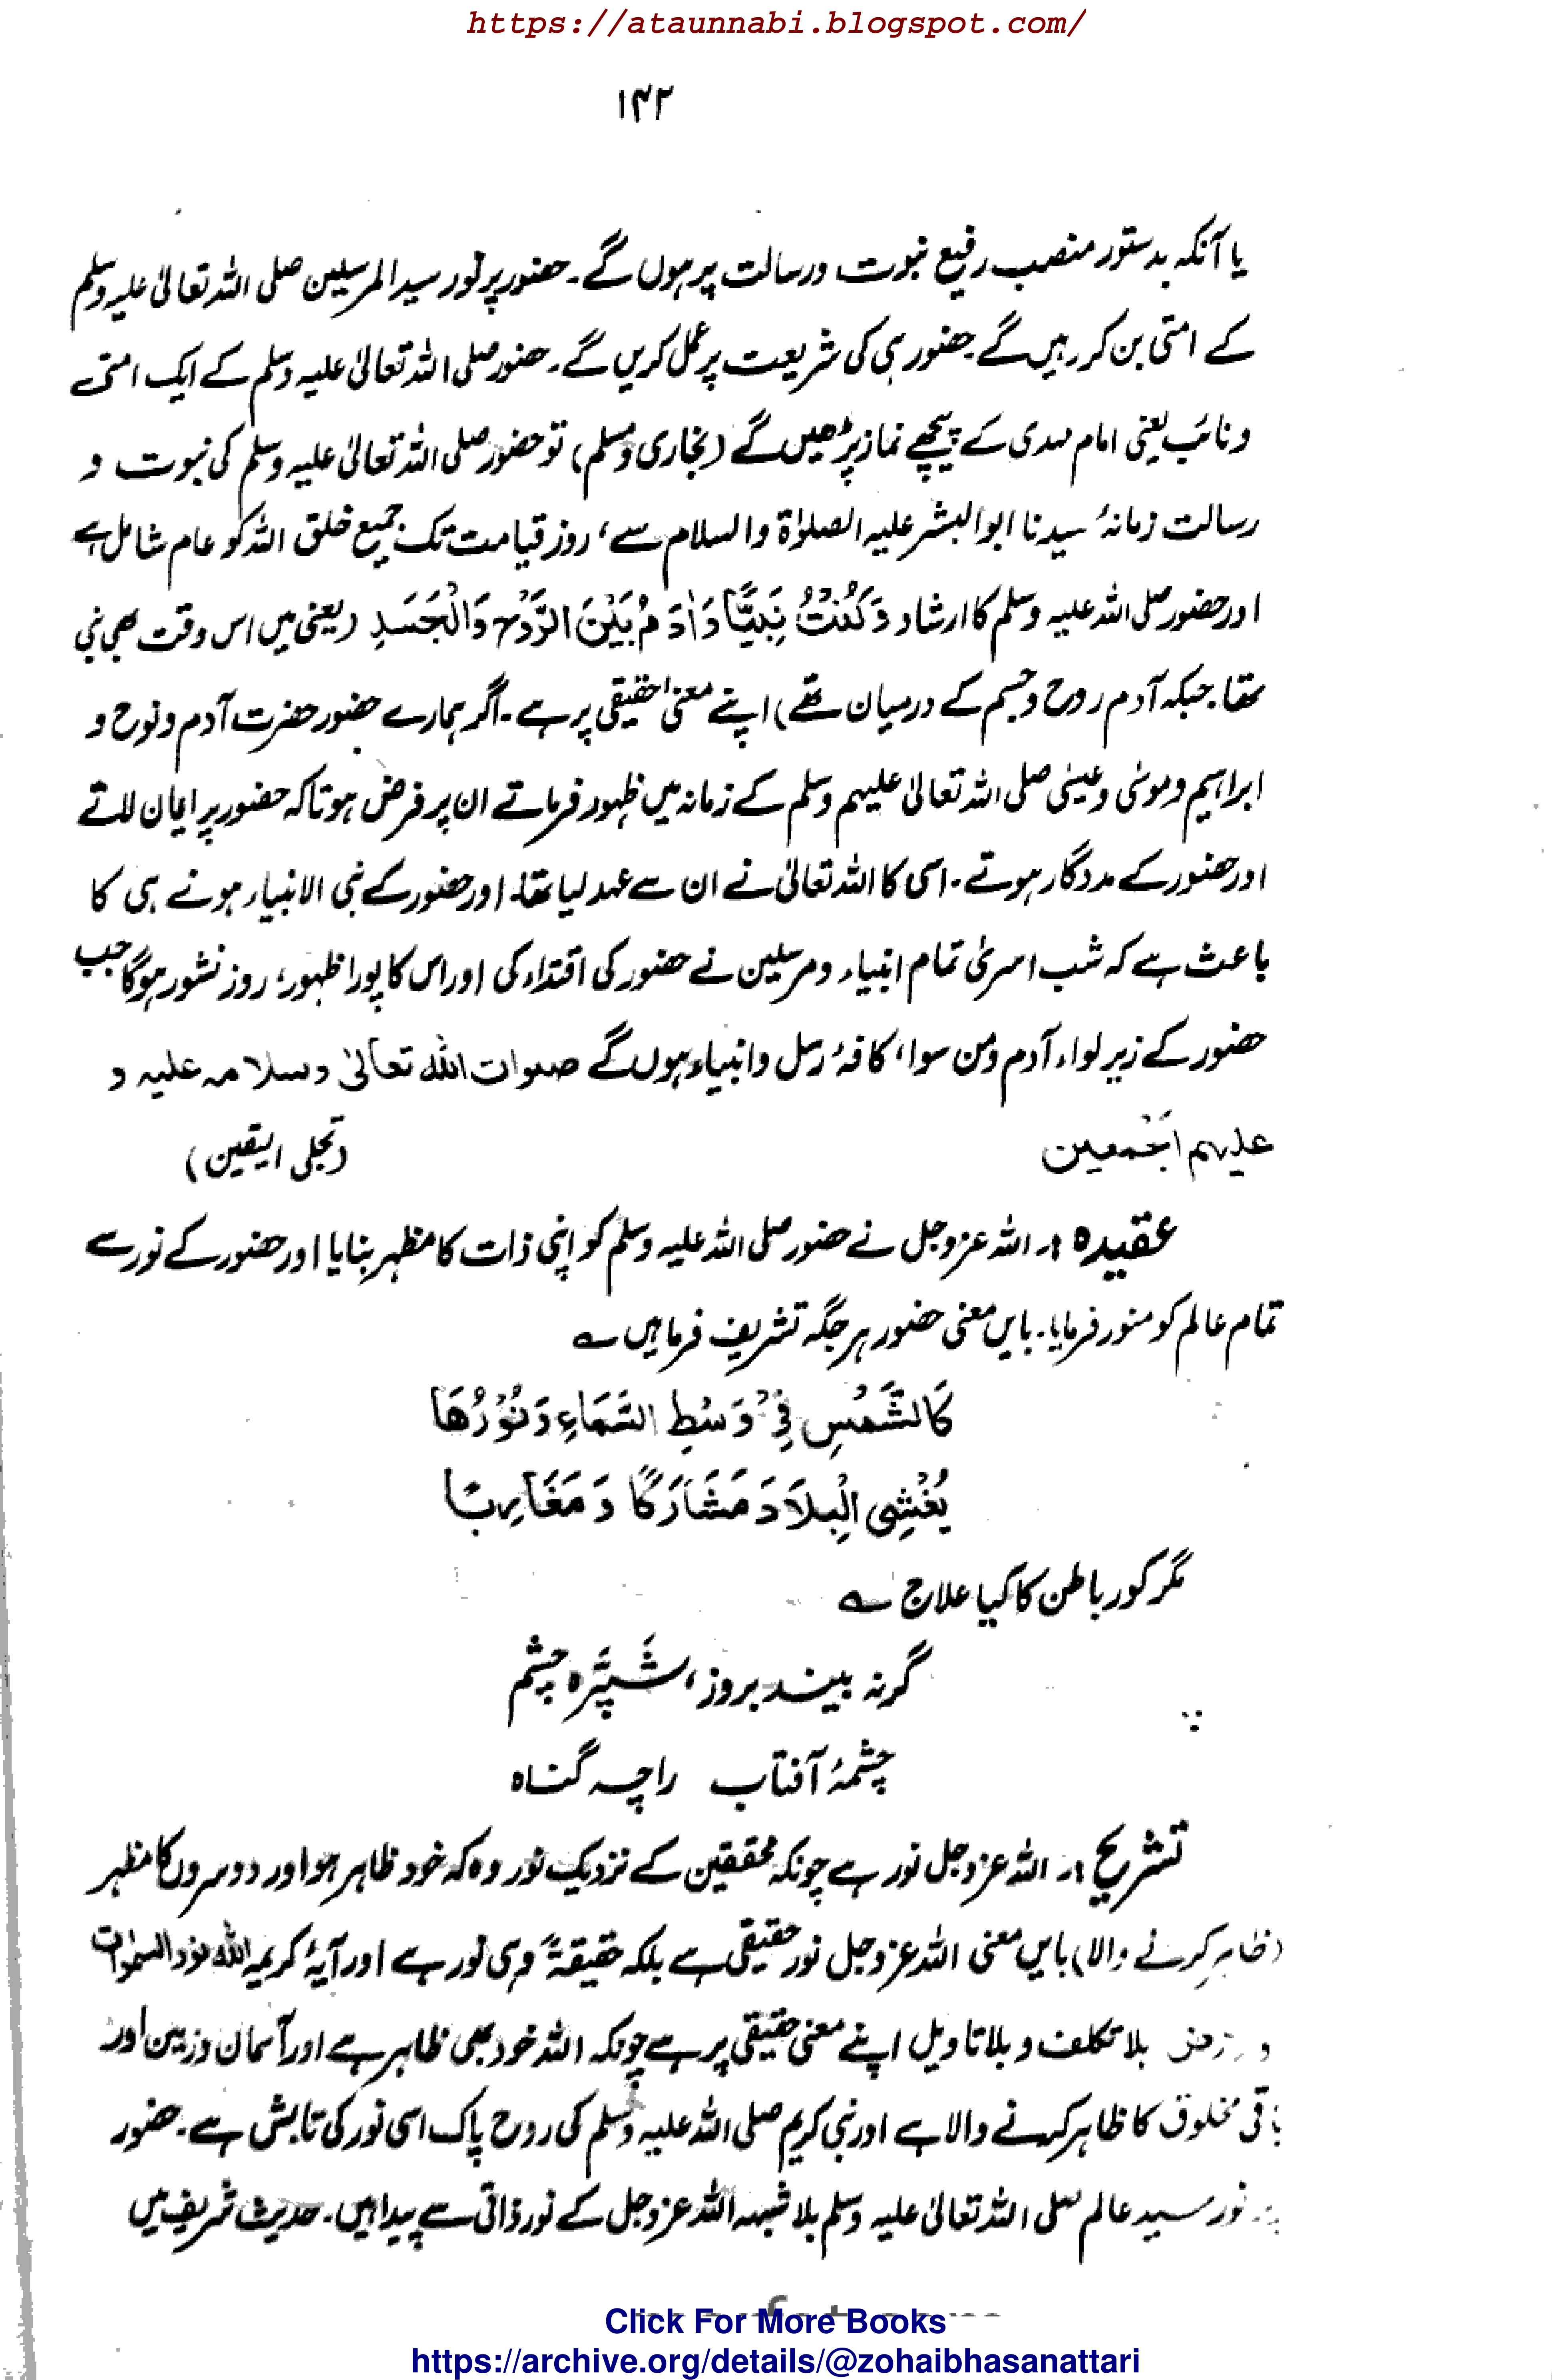 https://ataunnabi.blogspot.com/
۱۴۲
یا آنکہ بدستور منصب رفیع نبوت ورسالت پر ہوں گے۔ حضور پر نور سید المرسلین صلی اللہ تعالیٰ علیہ وسلم
کے امتی بن کر رہیں گے۔ حضور ہی کی شریعت پر عمل کریں گے۔ حضور صلی اللہ تعالیٰ علیہ وسلم کے ایک امتی
ونائب یعنی امام مہدی کے پیچھے نماز پڑھیں گے (بخاری ومسلم) تو حضور صلی اللہ تعالیٰ علیہ وسلم کی نبوت و
رسالت زمانۂ سیدنا ابوالبشر علیہ الصلوٰۃ والسلام سے، روز قیامت تک جمیع خلق اللہ کو عام شامل ہے
اور حضور صلی اللہ علیہ وسلم کا ارشاد وَکُنْتُ نَبِیًّا وَاٰدَمُ بَیْنَ الرُّوْحِ وَالْجَسَدِ (یعنی میں اس وقت بھی نبی
تھا۔ جبکہ آدم روح وجسم کے درمیان تھے) اپنے معنیٰ حقیقی پر ہے۔ اگر ہمارے حضور حضرت آدم ونوح و
ابراہیم وموسیٰ وعیسیٰ صلی اللہ تعالیٰ علیہم وسلم کے زمانہ میں ظہور فرماتے ان پر فرض ہوتا کہ حضور پر ایمان لاتے
اور حضور کے مددگار ہوتے۔ اسی کا اللہ تعالیٰ نے ان سے عہد لیا تھا۔ اور حضور کے نبی الانبیاء ہونے ہی کا
باعث ہے کہ شب اسریٰ تمام انبیاء ومرسلین نے حضور کی اقتداء کی اور اس کا پورا ظہور، روز نشور ہوگا جب
حضور کے زیر لواء آدم ومن سوا، کافۂ رسل وانبیاء ہوں گے صلوات اللہ تعالیٰ وسلامہ علیہ و
علیہم اَجْمعین (تجلی الیقین)
عقیدہ :۔ اللہ عزوجل نے حضور صلی اللہ علیہ وسلم کو اپنی ذات کا مظہر بنایا اور حضور کے نور سے
تمام عالم کو منور فرمایا۔ بایں معنی حضور ہر جگہ تشریف فرما ہیں ؎
کَالشَّمْسِ فِیْ وَسْطِ السَّمَاءِ وَنُوْرُھَا
یُغْشِی الْبِلَادَ مَشَارِکًا وَمَغَارِبًا
مگر کور باطن کا کیا علاج ؎
گر نہ بیند بروز، شَپَّرہ چشم
چشمۂ آفتاب راچہ گناہ
تشریح :۔ اللہ عزوجل نور ہے چونکہ محققین کے نزدیک نور وہ کہ خود ظاہر ہو اور دوسروں کا مظہر
(ظاہر کرنے والا) بایں معنی اللہ عزوجل نور حقیقی ہے بلکہ حقیقۃً وہی نور ہے اور آیۂ کریمہ اللہ نور السمٰوات
بلا تکلف وبلا تاویل اپنے معنی حقیقی پر ہے چونکہ اللہ خود بھی ظاہر ہے اور آسمان وزمین اور
باقی مخلوق کا ظاہر کرنے والا ہے اور نبی کریم صلی اللہ علیہ وسلم کی روح پاک اسی نور کی تابش ہے۔ حضور
نور سید عالم صلی اللہ تعالیٰ علیہ وسلم بلا شبہہ اللہ عزوجل کے نور ذاتی سے پیدا ہیں۔ حدیث شریف میں
Click For More Books
https://archive.org/details/@zohaibhasanattari